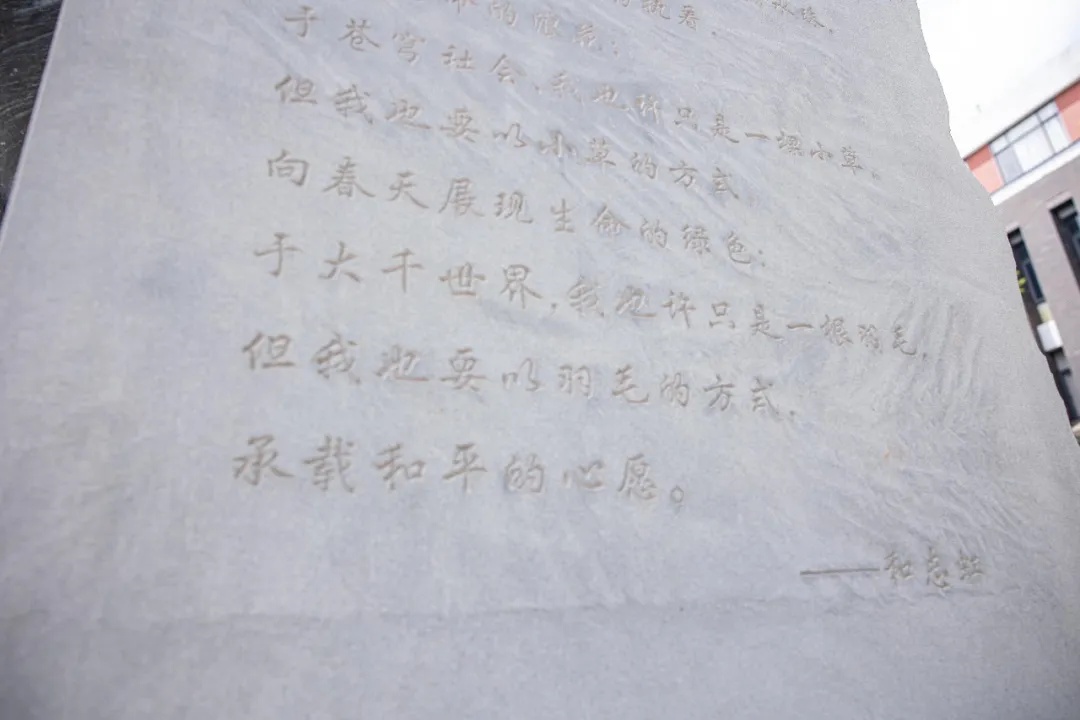 的执着，
命的
于苍穹社会，我也许只是一棵小草。
但我也要以小草的方式
向春天展现生命的绿色；
于大千世界，我也许只是一根羽毛，
但我也要以羽毛的方式，
承载和平的心愿。
——和志虹